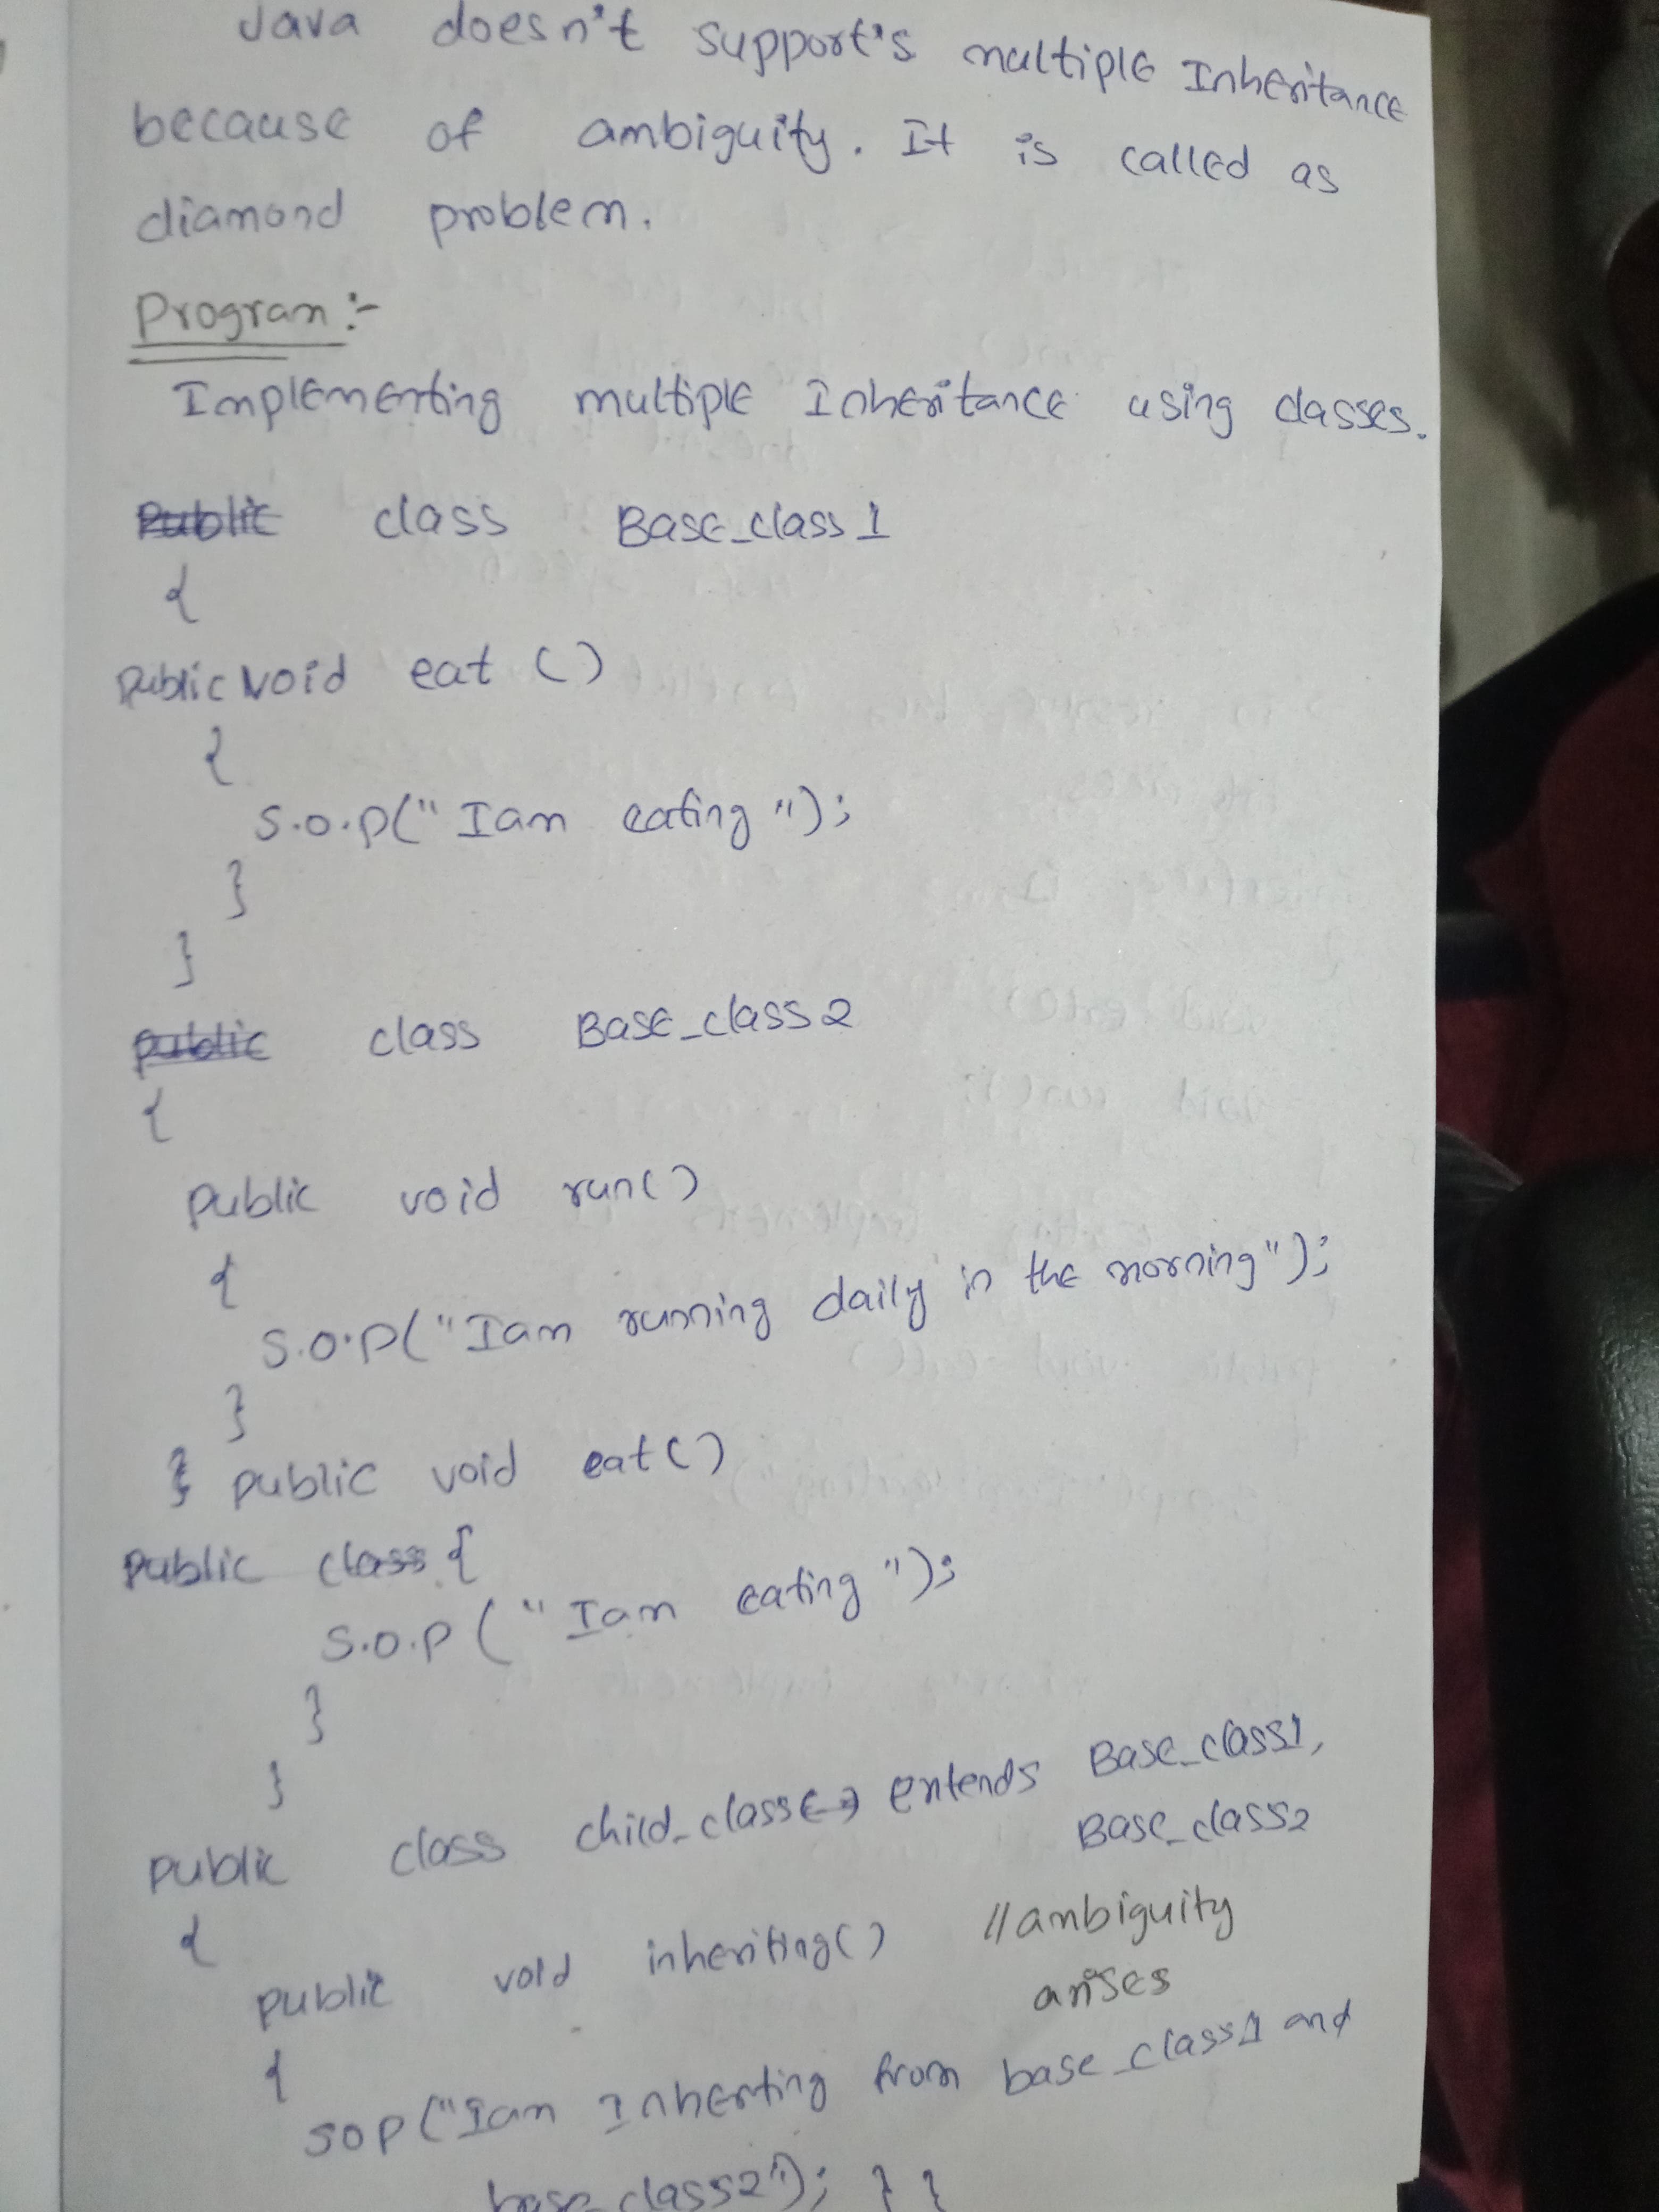 Java doesn't support's multiple Inheritance
because of ambiguity. It is called as
diamond problem.
Program :-
Implementing multiple Inheritance using classes.
public class Base_class 1
{
public void eat ()
{
S.O.P(" I am eating ");
}
}
public class Base_class 2
{
public void run()
{
S.O.P("I am running daily in the morning");
}
} public void eat()
public class {
S.O.P (" I am eating ");
}
}
public class child_class extends Base_class1,
Base_class2
{
public void inheriting() //ambiguity
arises
{
SOP("I am Inherting from base_class1 and
base_class2"); } }